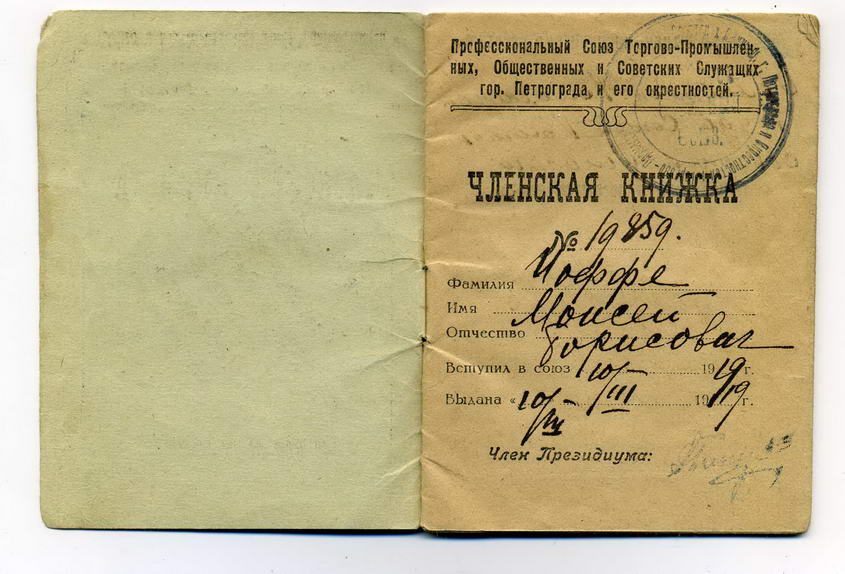 Профессиональный Союз Торгово-Промышлен-
ных, Общественных и Советских Служащих
гор. Петрограда и его окрестностей.
ЧЛЕНСКАЯ КНИЖКА
№ 19859.
Фамилия Иоффе
Имя Моисей
Отчество Борисович
Вступил в союз 10/III 1919 г.
Выдана « 10/III 1919 г.
Член Президиума: